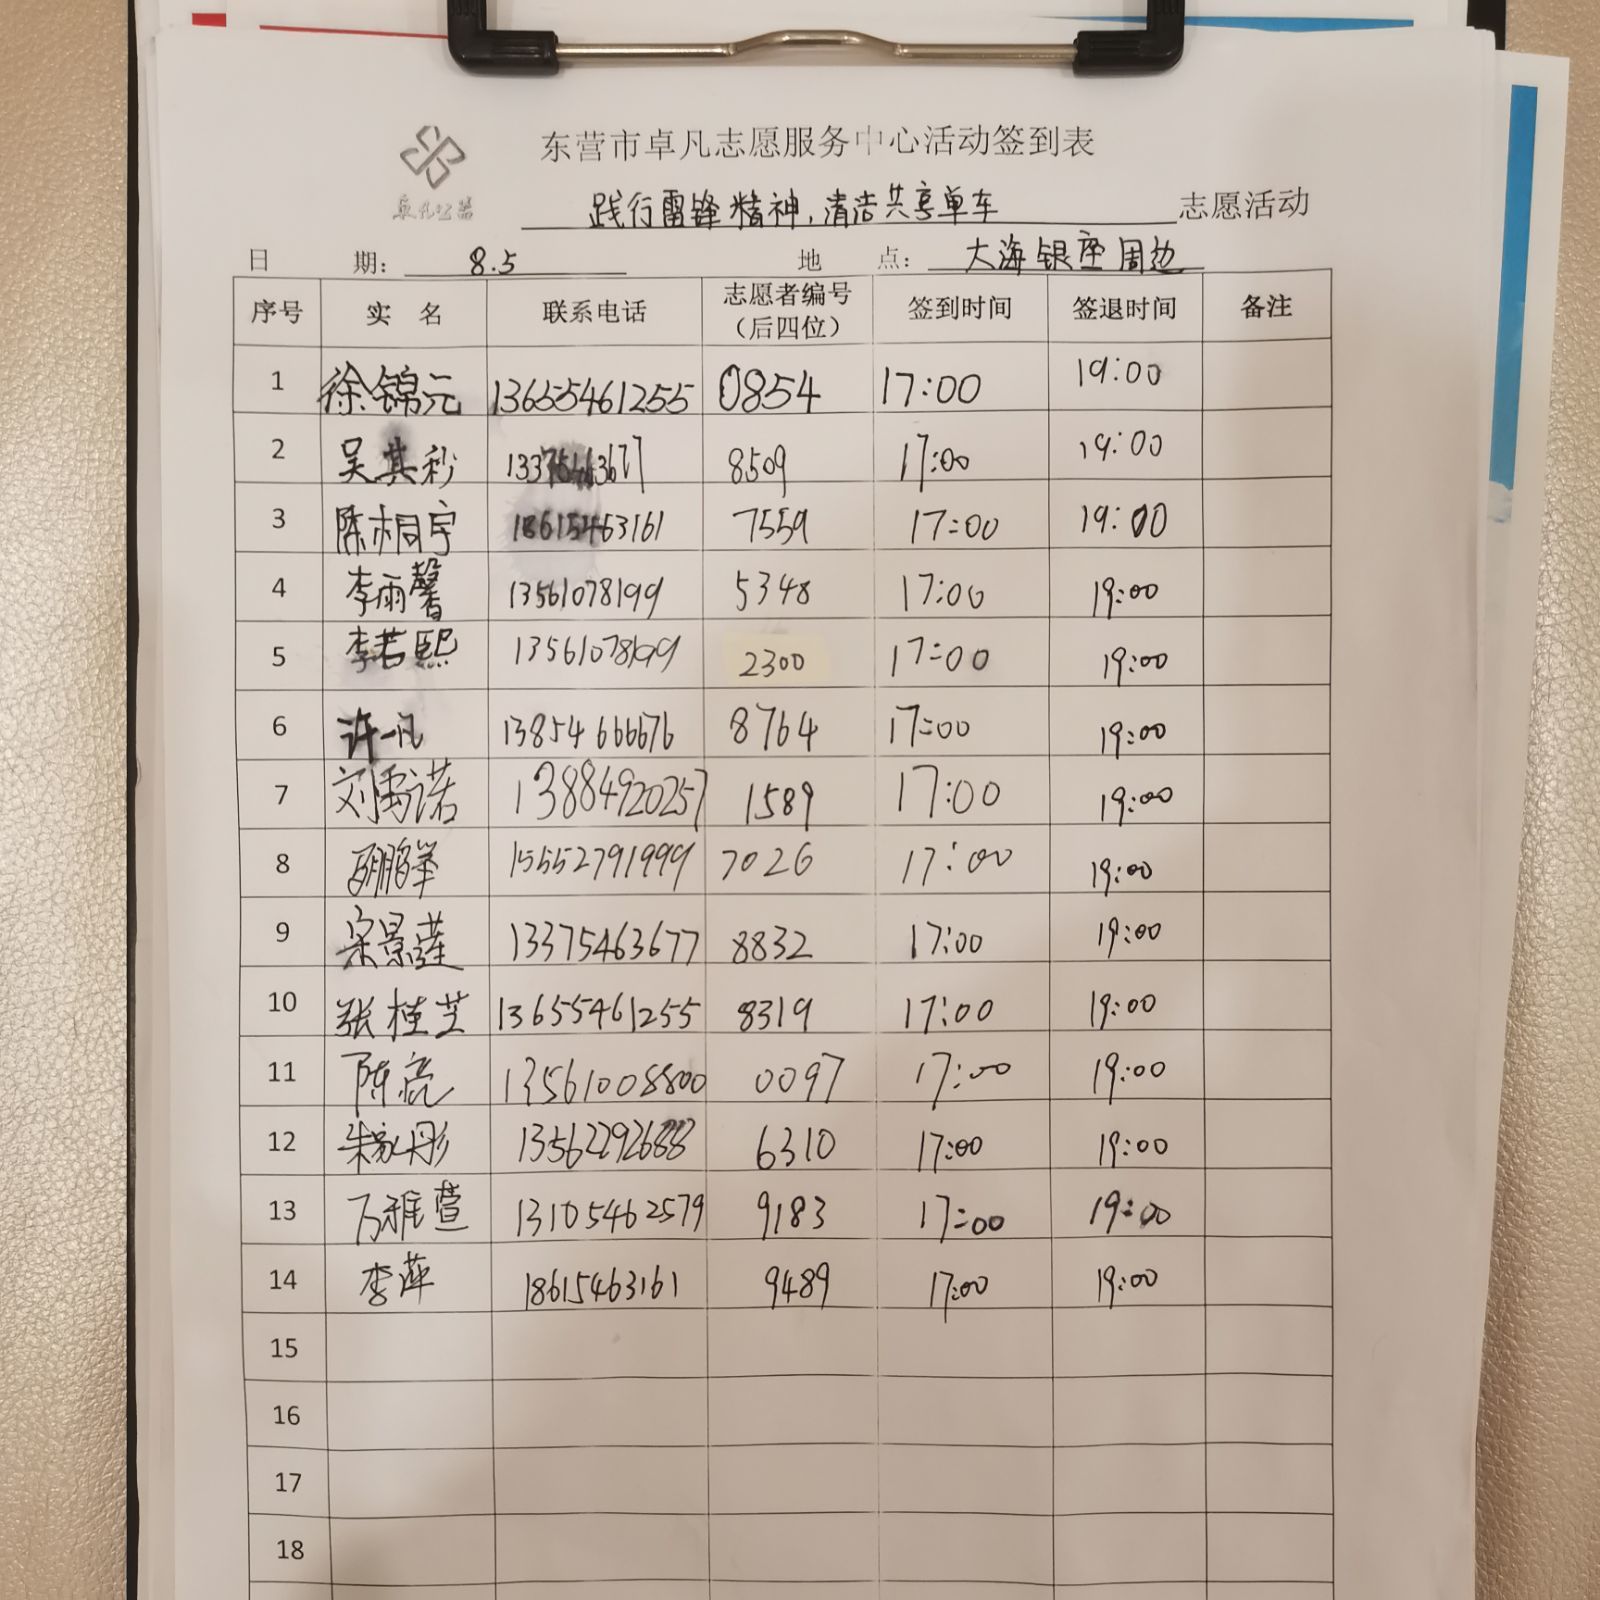 东营市卓凡志愿服务中心活动签到表
卓凡公益
践行雷锋精神,清洁共享单车 志愿活动
日 期: 8.5 地 点: 大海银座周边
序号 实 名 联系电话 志愿者编号（后四位） 签到时间 签退时间 备注
1 徐锦元 13655461255 0854 17:00 19:00
2 吴其秒 13375463677 8509 17:00 19:00
3 陈桐宇 18615463161 7559 17:00 19:00
4 李雨馨 13561078199 5348 17:00 19:00
5 李若熙 13561078199 2300 17:00 19:00
6 许一凡 13854666676 8764 17:00 19:00
7 刘禹诺 13884920257 1589 17:00 19:00
8 15552791999 7026 17:00 19:00
9 宋景莲 13375463677 8832 17:00 19:00
10 张桂芝 13655461255 8319 17:00 19:00
11 陈亮 13561008800 0097 17:00 19:00
12 朱家彤 13562292688 6310 17:00 19:00
13 万雅萱 13105462579 9183 17:00 19:00
14 李萍 18615463161 9489 17:00 19:00
15
16
17
18